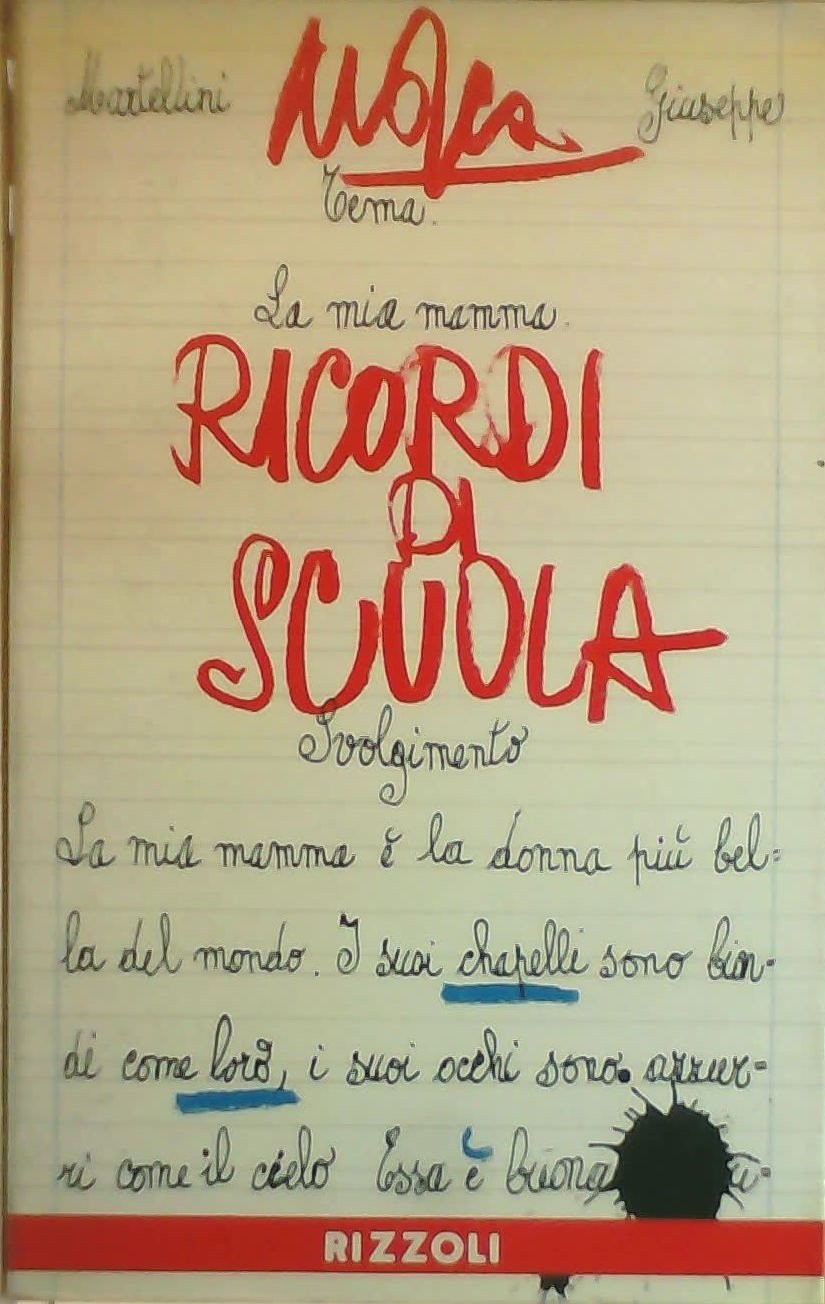 Martellini Mosca Giuseppe
Tema.
La mia mamma.
RICORDI
DI
SCUOLA
Svolgimento
La mia mamma è la donna più bel=
la del mondo. I suoi chapelli sono bion=
di come lorò, i suoi occhi sono azzur=
ri come il cielo Essa è buona
RIZZOLI